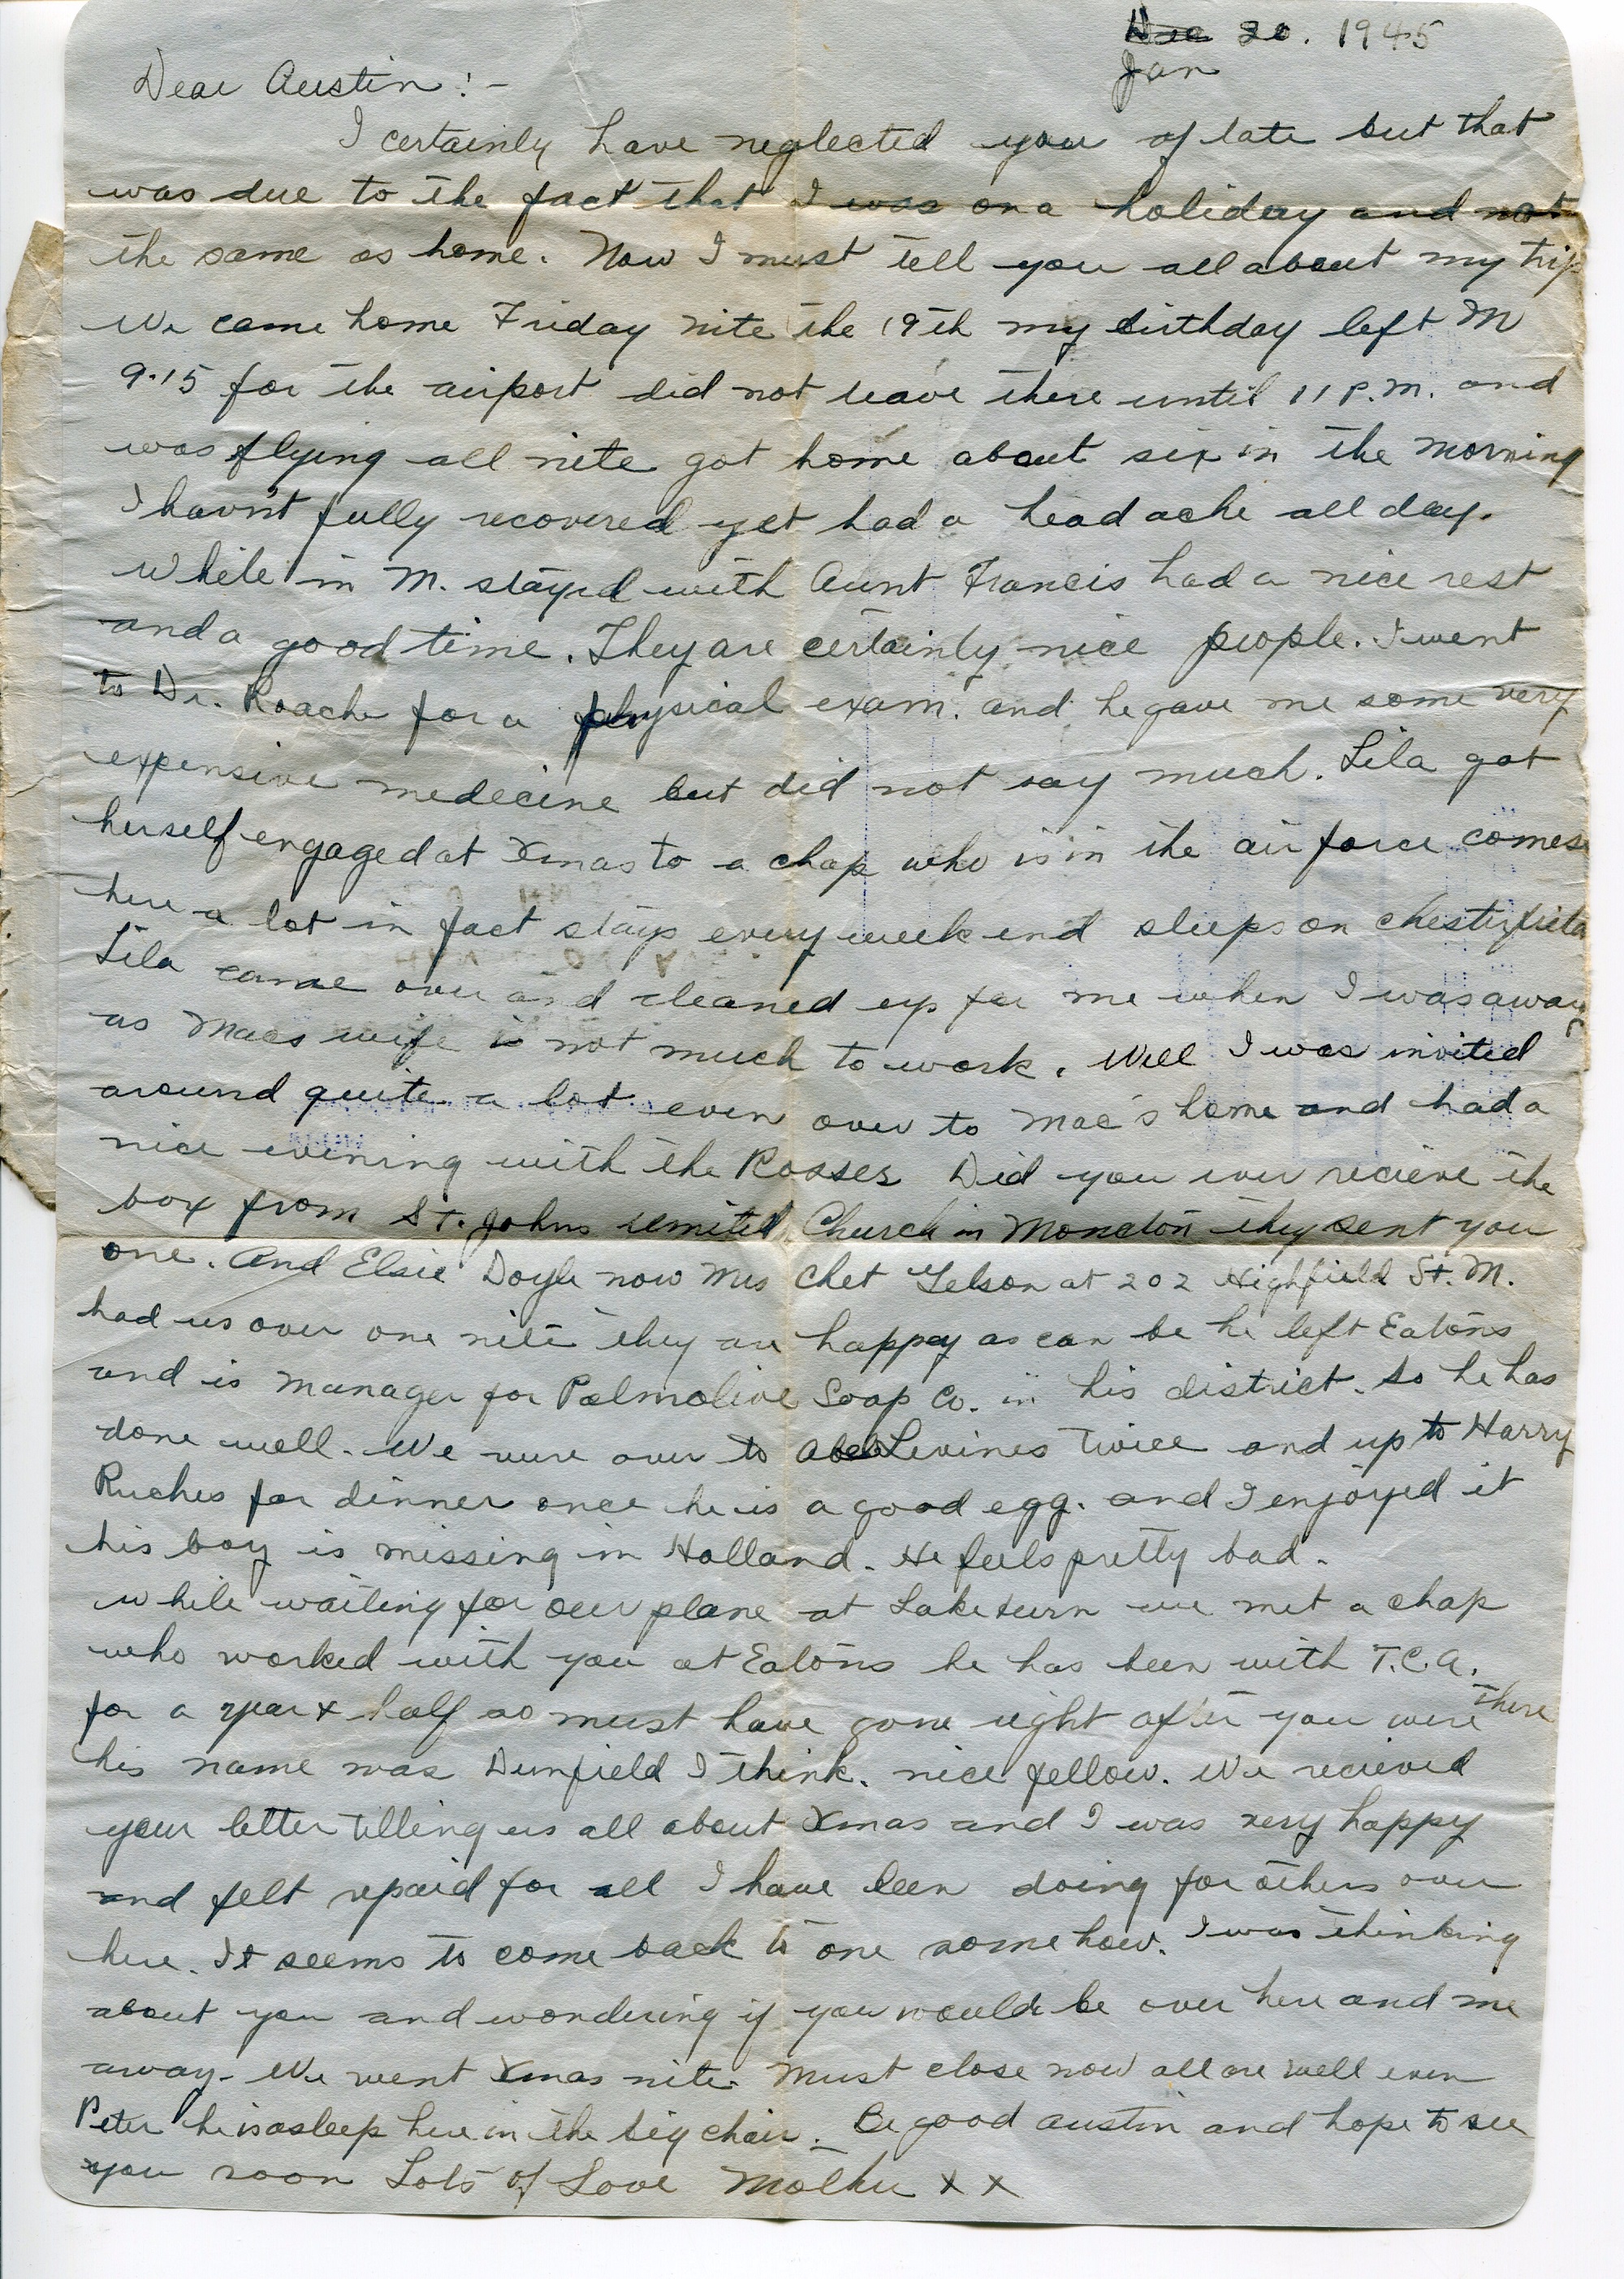 Dec 20. 1945
Jan
Dear Austin:-
I certainly have neglected you of late but that
was due to the fact that I was on a holiday and not
the same as home. Now I must tell you all about my trip
We came home Friday nite the 19th my birthday left M
9.15 for the airport did not leave there until 11 P.M. and
was flying all nite got home about six in the morning
I havn't fully recovered yet had a head ache all day.
While in M. stayed with Aunt Francis had a nice rest
and a good time. They are certainly nice people. I went
to Dr. Roache for a physical exam. and he gave me some very
expensive medecine but did not say much. Lila got
herself engaged at Xmas to a chap who is in the air force comes
here a lot in fact stays every week end sleeps on chesterfield
Lila came over and cleaned up for me when I was away
as Macs wife is not much to work. Well I was invited
around quite a lot even over to Mac's home and had a
nice evening with the Rosses Did you ever recieve the
box from St. Johns United Church in Moncton they sent you
one. And Elsie Doyle now Mrs Chet Gelson at 202 Highfield St. M.
had us over one nite they are happy as can be he left Eatons
and is manager for Palmolive Soap Co. in his district. So he has
done well. We were over to Abe Levines twice and up to Harry
Ruches for dinner once he is a good egg. and I enjoyed it
his boy is missing in Holland. He feels pretty bad.
while waiting for our plane at Lakeburn we met a chap
who worked with you at Eatons he has been with T.C.A.
for a year & half so must have gone right after you were there
his name was Dunfield I think. nice fellow. We recieved
your letter telling us all about Xmas and I was very happy
and felt repaid for all I have been doing for others over
here. It seems to come back to one some how. I was thinking
about you and wondering if you would be over here and me
away. We went Xmas nite. Must close now all are well even
Peter he is asleep here in the big chair. Be good Austin and hope to see
you soon Lots of Love Mother x x